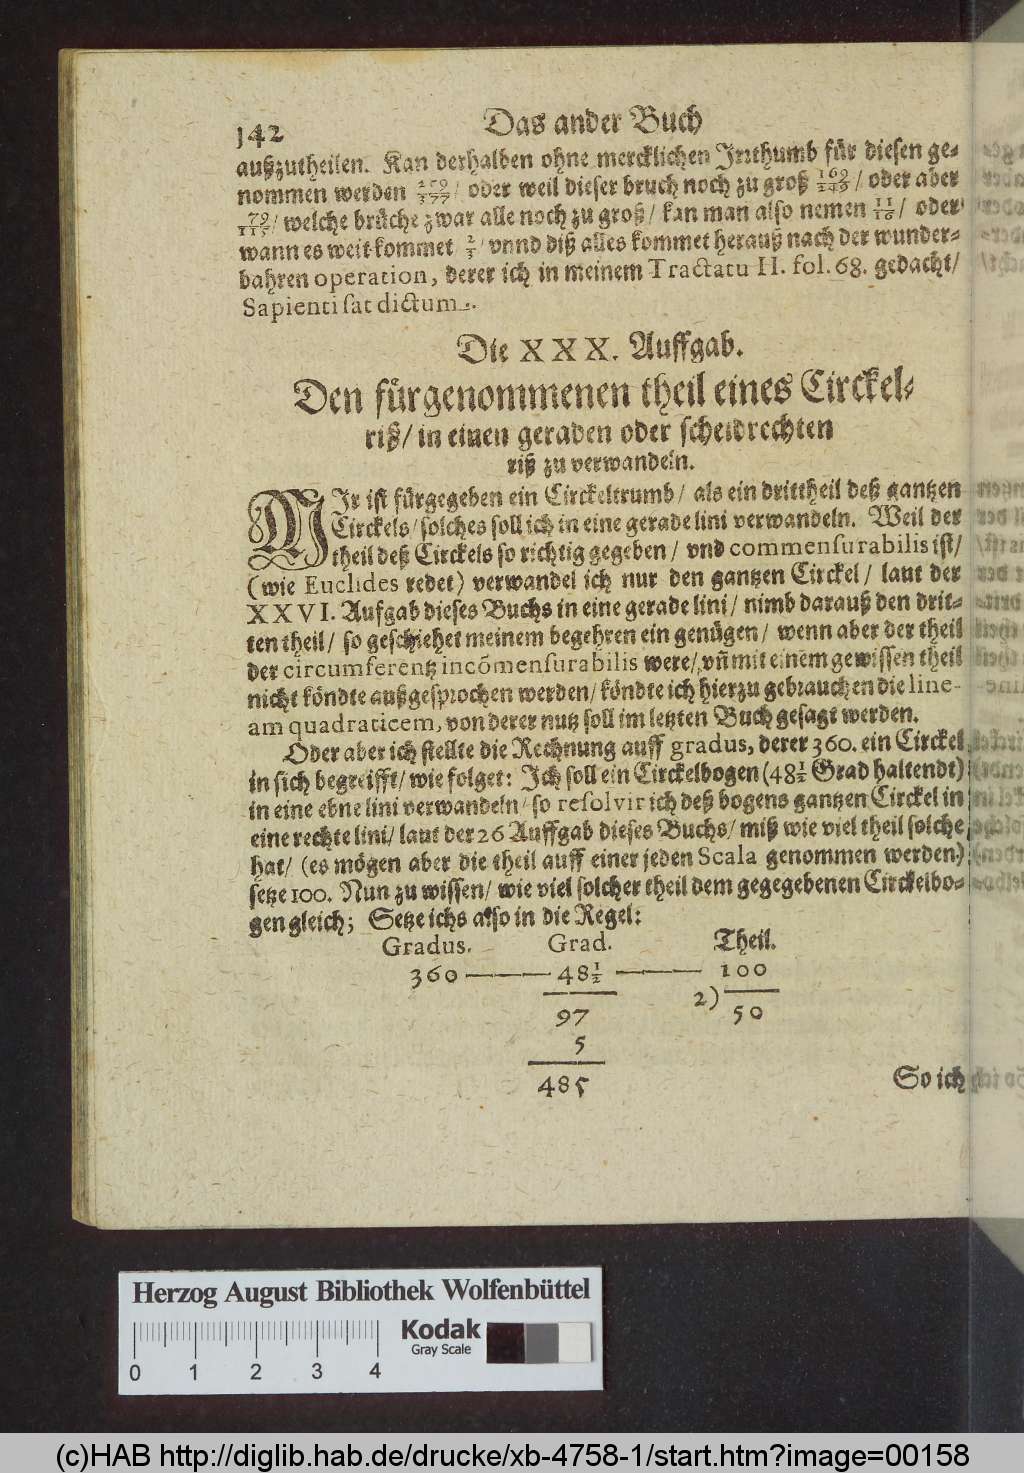 142
Das ander Buch
außzutheilen. Kan derhalben ohne mercklichen Irrthumb für diesen ge-
nommen werden 259/377/ oder weil dieser bruch noch zu groß 169/246/ oder aber
79/115/ welche brüche zwar alle noch zu groß/ kan man also nemen 11/16/ oder
wann es weit kommet 2/3/ vnnd diß alles kommet herauß nach der wunder-
bahren operation, derer ich in meinem Tractatu II. fol. 68. gedacht/
Sapienti sat dictum.
Die XXX. Auffgab.
Den fürgenommenen theil eines Circkel-
riß/ in einen geraden oder scheidrechten
riß zu verwandeln.
MIr ist fürgegeben ein Circkeltrumb/ als ein drittheil deß gantzen
Circkels/ solches soll ich in eine gerade lini verwandeln. Weil der
theil deß Circkels so richtig gegeben/ vnd commensurabilis ist/
(wie Euclides redet) verwandel ich nur den gantzen Circkel/ laut der
XXVI. Aufgab dieses Buchs in eine gerade lini/ nimb darauß den drit-
ten theil/ so geschiehet meinem begehren ein genügen/ wenn aber der theil
der circumferentz incõmensurabilis were/ vñ mit einem gewissen theil
nicht köndte außgesprochen werden/ köndte ich hierzu gebrauchen die line-
am quadraticem, von derer nutz soll im letzten Buch gesagt werden.
Oder aber ich stellte die Rechnung auff gradus, derer 360. ein Circkel
in sich begreifft/ wie folget: Ich soll ein Circkelbogen (48½ Grad haltendt)
in eine ebne lini verwandeln/ so resolvir ich deß bogens gantzen Circkel in
eine rechte lini/ laut der 26 Auffgab dieses Buchs/ miß wie viel theil solche
hat/ (es mögen aber die theil auff einer jeden Scala genommen werden)
setze 100. Nun zu wissen/ wie viel solcher theil dem gegegebenen Circkelbo-
gen gleich; Setze ichs also in die Regel:
Gradus. Grad. Theil.
360 — 48½ — 100
2) 50
97
5
485
So ich
Herzog August Bibliothek Wolfenbüttel
Kodak
Gray Scale
0 1 2 3 4
(c)HAB http://diglib.hab.de/drucke/xb-4758-1/start.htm?image=00158